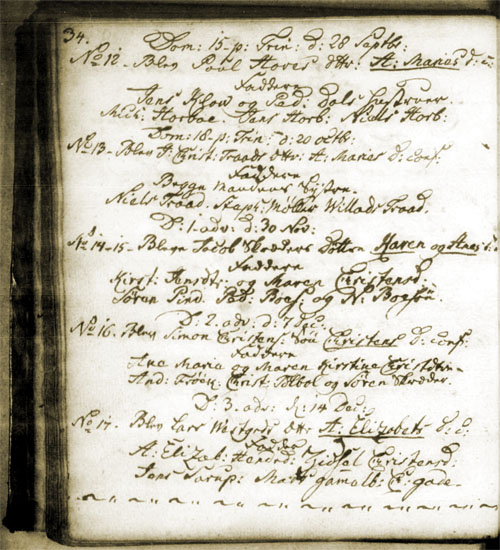 34.
Dom: 15. p: Trin: d: 28 Septbr:
No 12 - Blev Poul Hoves dttr: A: Maries d: c:
Faddere
Jens Klow og Ped: Dals Hustruer
Mich: Horboe Jens Horb: Niels Horb:
Dom: 18. p: Trin: d: 20 octb:
No 13 - Blev Christ: Traads dttr: A: Maries d: conf:
Faddere
Begge Mandens Systre
Niels Traad. Steph: Møller Willads Traad.
D: 1. adv: d: 30 Nov:
No 14-15 - Bleve Jacob Skredders Døttre Karen og
Faddere
Kirst: og Maren Christensd:
Søren Pind. Ped: Boes: og N: Boesøn.
D: 2. adv: d: 7 Dec:
No 16. Blev Simon Christens: Søn Christens d: conf:
Faddere
Ane Maria og Maren Kirstine Christdttre
And: Christ: Tolbol og Søren Skredder.
D: 3. adv: d: 14 Dec:
No 17 - Blev Lars Westgrds dttr: A: Elizabets d: c:
Faddere
A: Elizab: Zidsel Christensd:
Jens Sarup: Mats gamelb: C: gade.